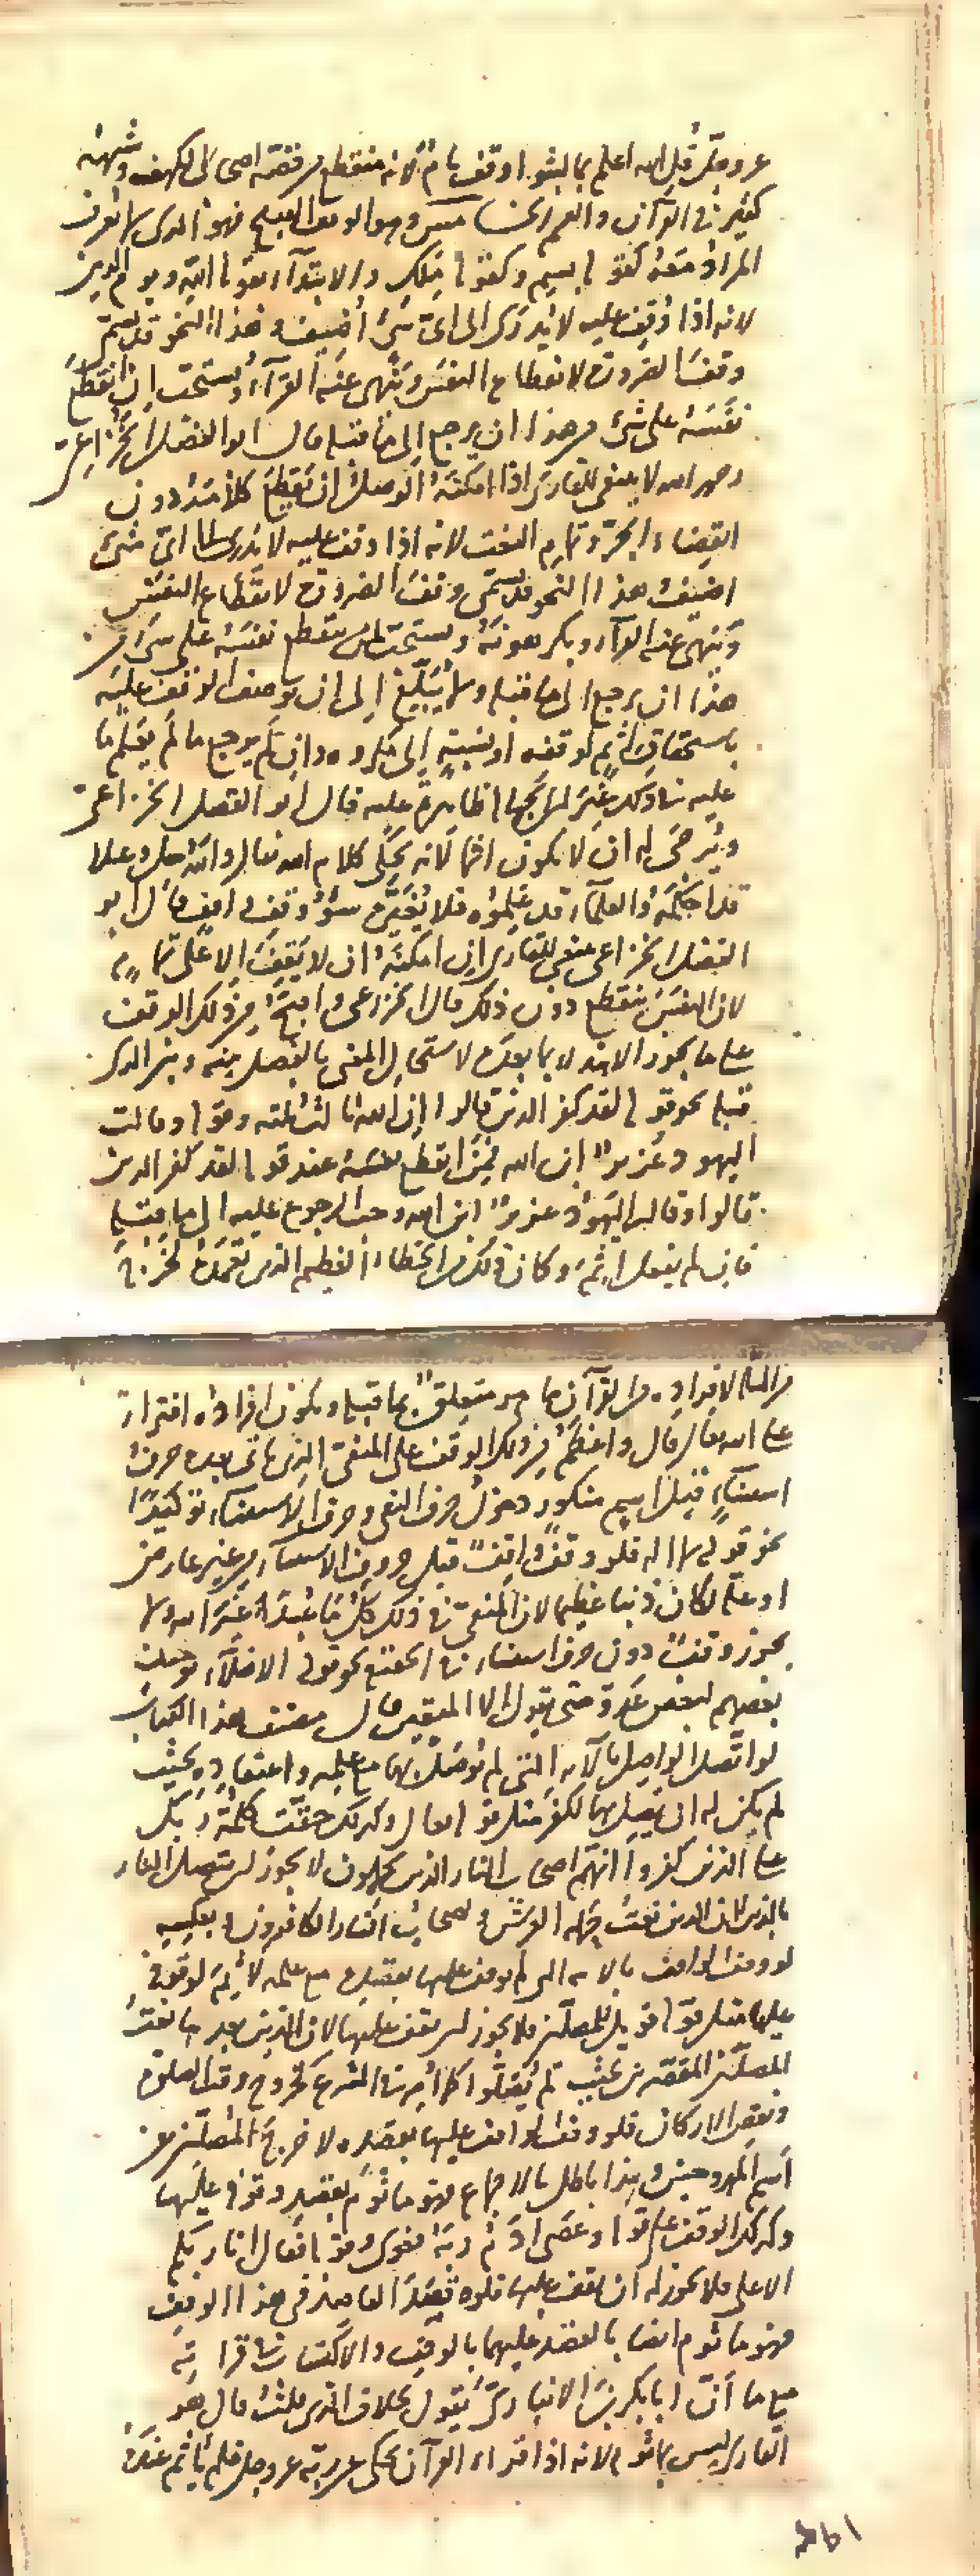 عز وجل قل الله اعلم بما لبثوا وقف تام لانه منقطع من قصة اصحاب الكهف وشبهه
كثير في القرآن والضرب الخامس وهو الوقف القبيح فهو الذي لا يعرف
المراد منه كقوله بسم وكقوله ملك والابتداء بقوله الله ويوم الدين
لانه اذا وقف عليه لا يدرى الى اي شئ اضيف وهذا النحو قد يسمى
وقف الضرورة لانقطاع النفس وينهى عنه القراء ويستحب ان انقطع
نفسه على شئ من هذا ان يرجع الى ما قبله قال ابو الفضل الخزاعى
رحمه الله لا ينبغى للقارى اذا امكنه الوصل ان يقطع كلامه دون
انقضاء الجزء وتمام النعت لانه اذا وقف عليه لا يدرى الى اي شئ
اضيف هذا النحو قد يسمى وقف الضرورة لانقطاع النفس
وينهى عنه القراء ويكرهونه ويستحب لمن ينقطع نفسه على شئ من
هذا ان يرجع الى ما قبله ولا يبلغ الى ان يوصف الواقف عليه
باستحقاق اثم لوقفه او نسبته الى مكروه وان لم يرجع ما لم يعلم ما
عليه في ذلك غير ان الظاهرة عليه قال ابو الفضل الخزاعى
ويرجى له ان لا يكون اثما لانه يحكى كلام الله تعالى والله جل وعلا
قد احكمه والعلماء قد علموه فلا يغيره سوء وقف واقف قال ابو
الفضل الخزاعى ينبغى للقارى ان امكنه ان لا يقف الا على تمام
لان النفس ينقطع دون ذلك قال الخزاعى واقبح من ذلك الوقف
على ما يجوز الابتداء بما بعده لاستحال المعنى بالفصل بينه وبين الذى
قبله نحو قوله لقد كفر الذين قالوا ان الله ثالث ثلثة وقوله وقالت
اليهود عزير ابن الله فمن انقطع نفسه عند قوله لقد كفر الذين
قالوا وقالت اليهود عزير ابن الله وجب الرجوع عليه الى ما قبله
فان لم يفعل اثم وكان ذلك من الخطاء العظيم الذى تعمده لخرج
من الملة لافراده من القرآن ما هو متعلق بما قبله ويكون افراده افتراء
على الله تعالى قال واعظم من ذلك الوقف على المنفى الذى ياتى بعده حرف
استثناء قبل اسم مذكور دخول حرف النفى وحرف الاستثناء توكيدا
نحو قوله لا اله فلو وقف واقف قبل حرف الاستثناء من غير عارض
او علة لكان ذنبا عظيما لان المنفى في ذلك كل ما عبد غير الله ولا
يجوز وقف دون حرف استثناء في الجميع نحو قوله الاخلاء يومئذ
بعضهم لبعض عدو حتى يقول الا المتقين قال مصنف هذا الكتاب
لو اتصل الواصل بالآية التى لم توصل بها مع علمه واعتقاده بحيث
لم يكن له ان يتصل بها لكفر مثل قوله تعالى وكذلك حقت كلمة ربك
على الذين كفروا انهم اصحاب النار الذين يحملون لا يجوز ان يتصل النار
بالذين لان الذين نعت حملة العرش واصحاب النار الكافرون وبعكسه
لو وقف الواقف بالآية التى لم يوقف عليها بقصد مع علمه لاثم لوقوفه
عليها مثل قوله فويل للمصلين فلا يجوز ان يقف عليها لان الذين بعدها نعت
المصلين المقصرين بحيث لم يفعلوا كما امر في الشرع كخروج وقت الصلوة
ونقص الاركان فلو وقف الواقف عليها بقصده لاخرج المصلين من
اسم الممدوحين وهذا باطل بالاجماع فهو ماثوم بقصد وقوفه عليها
وكذلك الوقف على قوله وعصى ادم ربه فغوى وقوله فقال انا ربكم
الاعلى فلا يجوز له ان يقف عليها فلو قصد القاصد في هذا الوقف
فهو ماثوم ايضا بالقصد عليهما بالوقف والاكتساب في قراءته
مع ما ان ابا بكر بن الانبارى يقول بخلاف الذى قلت قال هو
القارى ليس بماثوم لانه اذا قراء القرآن يحكى عن ربه عز وجل فلم ياثم عنده